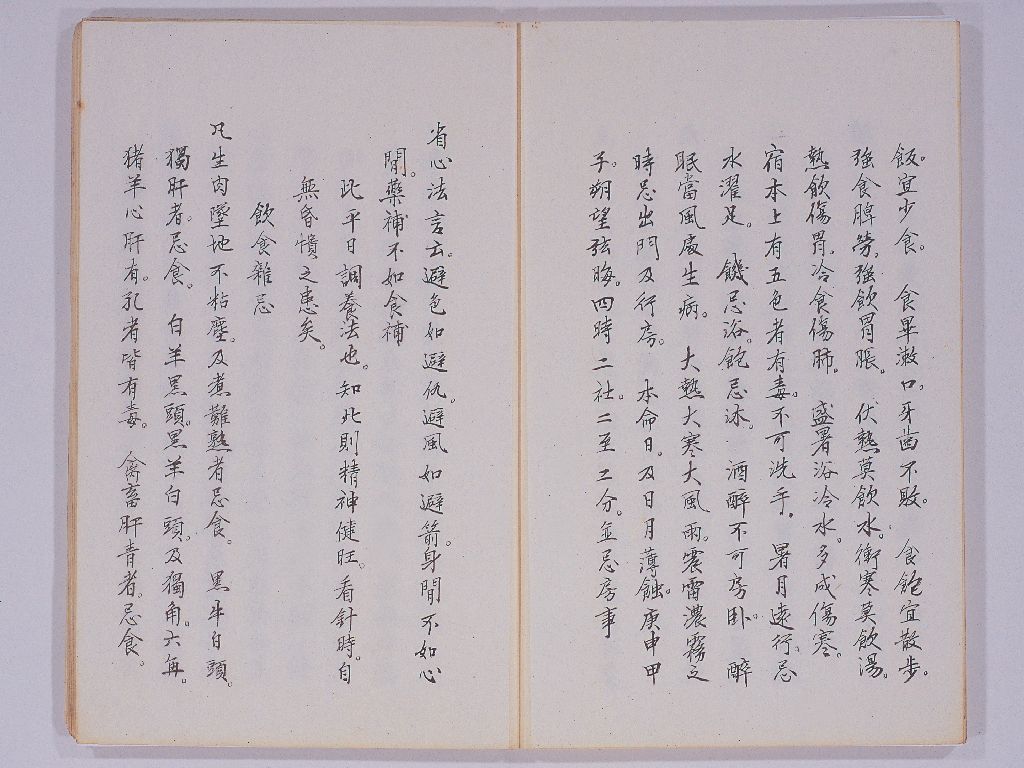 飯宜少食。 食畢漱口。牙齒不敗。 食飽宜散步。
強食脾勞。強飲胃脹。 伏熱莫飲水。衝寒莫飲湯。
熱飲傷胃。冷食傷肺。 盛署浴冷水。多成傷寒。
宿水上有五色者有毒。不可洗手。 暑月遠行。忌
水濯足。 饑忌浴。飽忌沐。 酒醉不可房卧。 醉
眠當風處生病。 大熱大寒大風雨。震雷濃霧之
時忌出門及行房。 本命日。及日月薄蝕。庚申甲
子。朔望弦晦。四時二社。二至二分。並忌房事
省心法言云。避色如避仇。避風如避箭。身閒不如心
閒。藥補不如食補
此平日調養法也。知此則精神健旺。看針時。自
無昏憒之患矣。
飲食雜忌
凡生肉墜地不粘塵。及煮難熟者忌食。 黑牛白頭。
獨肝者。忌食。 白羊黑頭。黑羊白頭。及獨角。六角。
猪羊心肝有。孔者皆有毒。 禽畜肝青者。忌食。